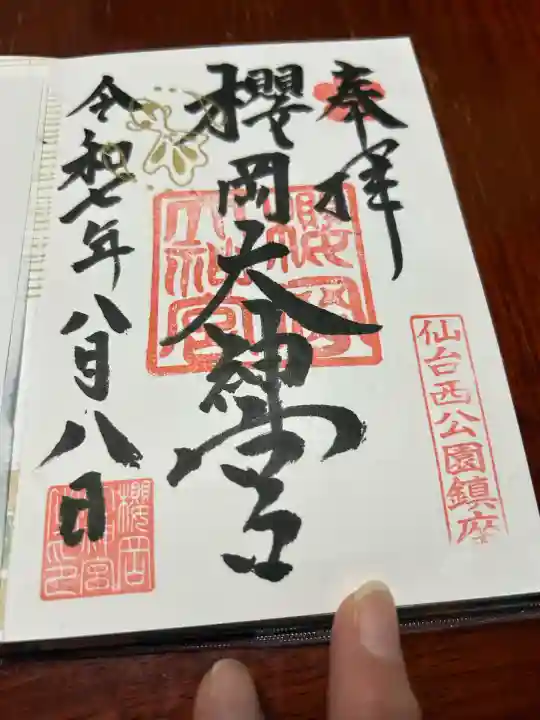 奉拝
櫻岡大神宮
令和七年八月八日
仙台西公園鎮座
櫻岡大神宮